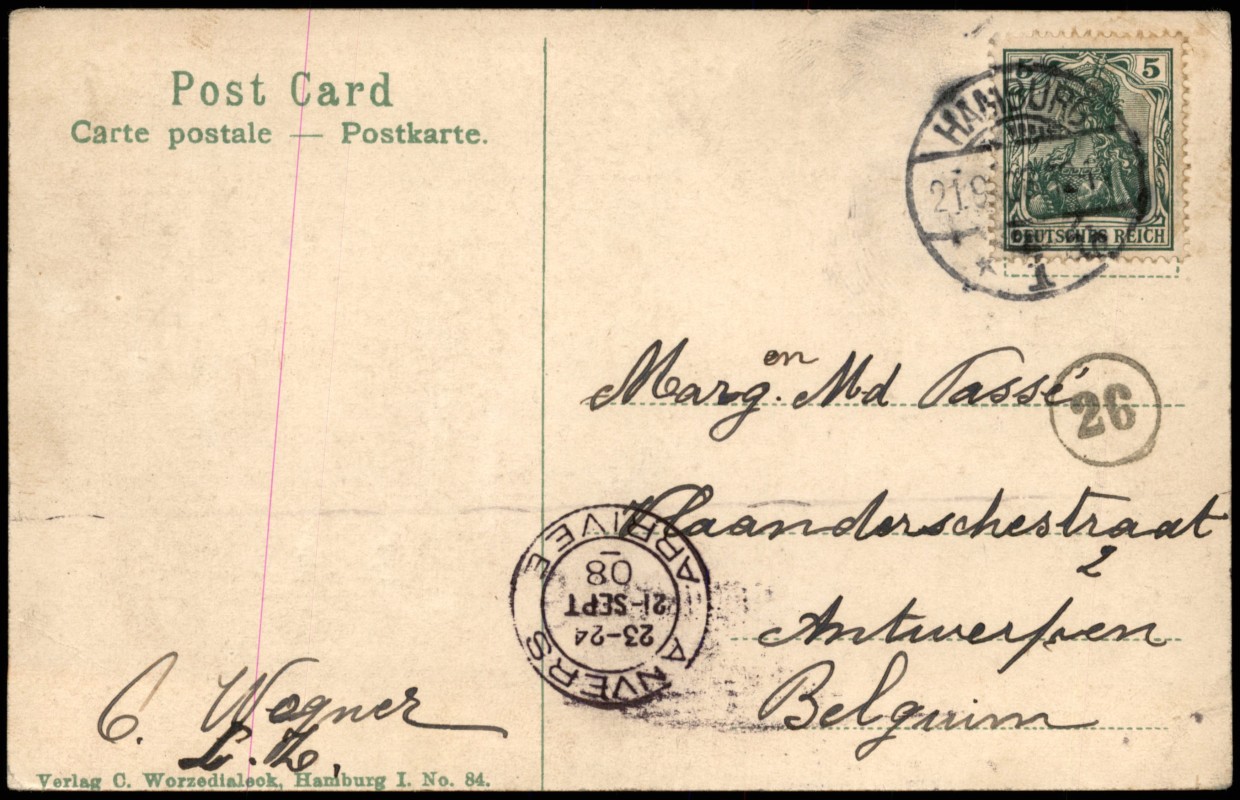 Post Card
Carte postale — Postkarte.
5 5
HAMBURG
21.9.
* 1
DEUTSCHES REICH
Marg.en Md Tassé
26
Vlaanderschestraat
2
Antwerpen
Belguim
ANVERS
23-24
21-SEPT
08
ARRIVEE
C. Wegner
L. Z,
Verlag C. Worzedialeck, Hamburg I. No. 84.